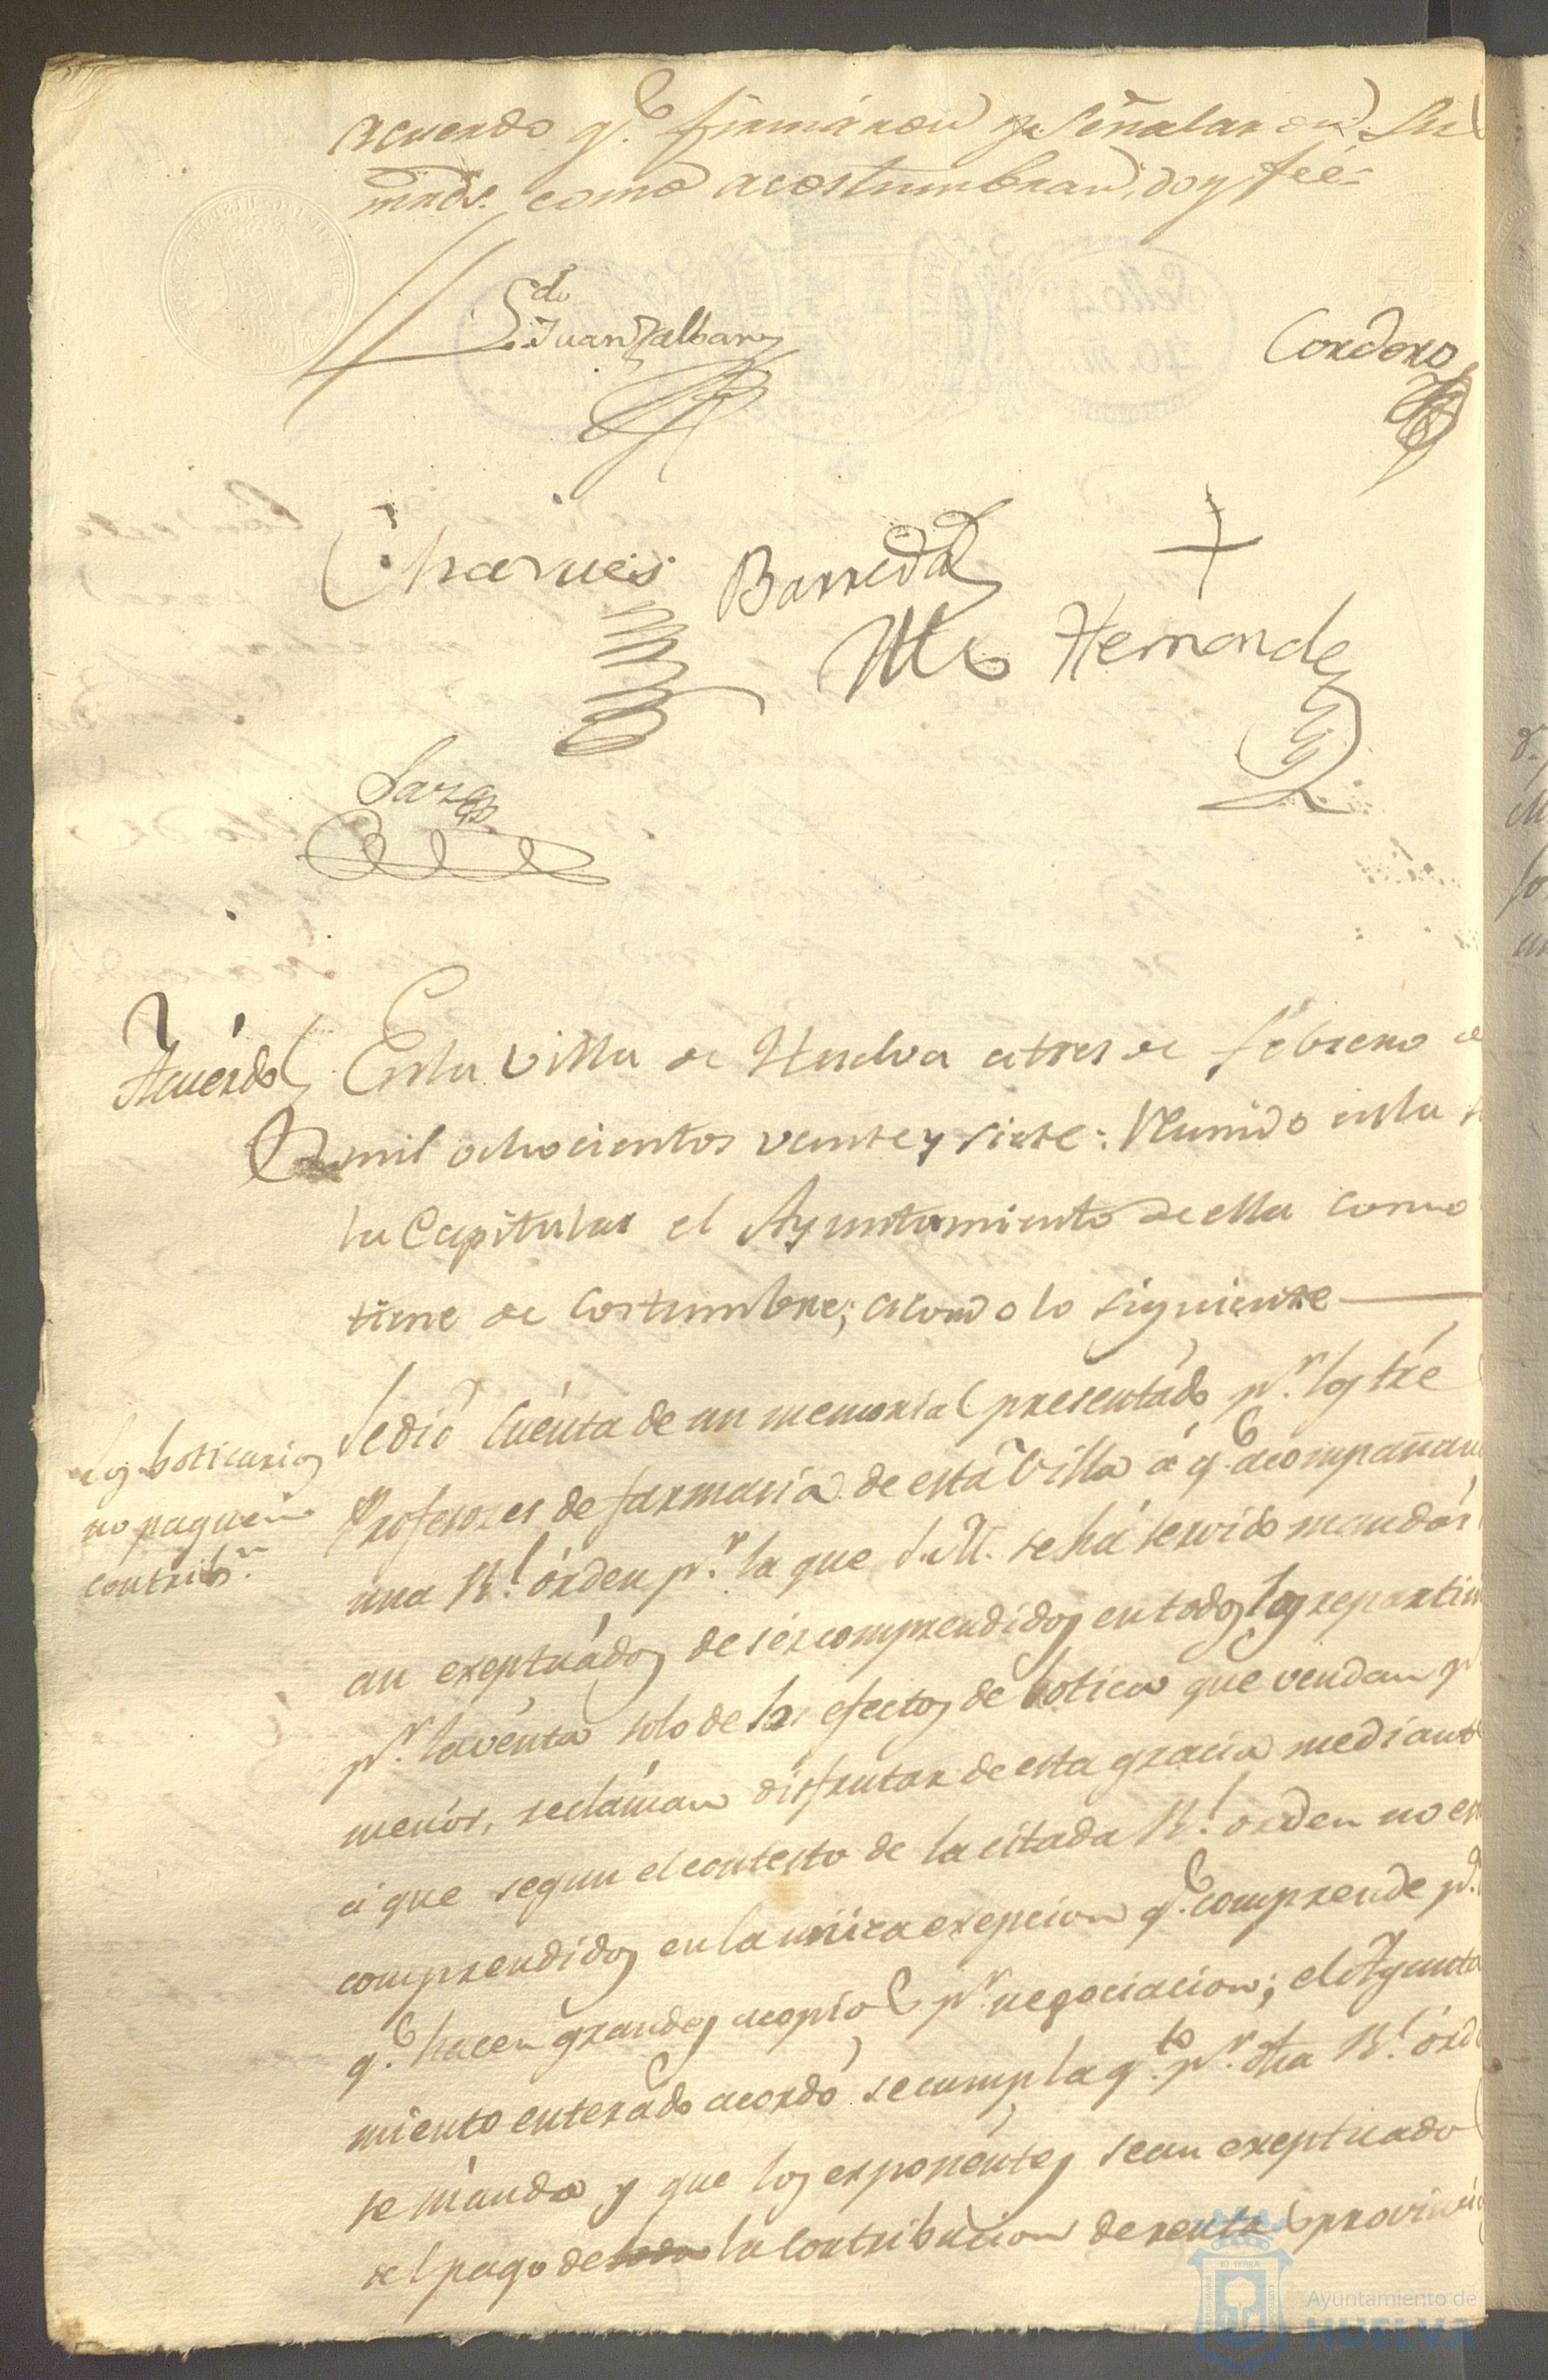 acuerdo q.e firmáron y señalaron su
mrds. como acostumbran, doy fée=
Ldo
Juan Zalbany
Cordero
Charues
Barreda
+
Mo Hernandez
Acuérdo
Enla villa de Huelva atres de febrero de
mil ochocientos veinte y siete: Reunido enla
la Capitular el Ayuntamiento de ella como
tiene de costumbre; acordo lo siguiente
los boticarios
no paguen
contrib.n
Sedió cuénta de un memorial presentádo p.r los tre
Profesores de farmacia de esta Villa á q.e acompañan
una R.l órden p.r la que S.M. se há servido mandár
an exeptuádos de sér comprendidos en todos los repartim
p.r la vénta solo de los efectos de botica que vendan p.r
menór, recláman disfrutar de esta gracia mediante
á que segun el contesto de la citada R.l orden no es
comprendidos en la unica exepcion q.e comprende p.a
q.e hacen grandes acopios p.r negociacion; el Ayunta
miento enterádo acordó se cumpla q.to p.r dha R.l órde
se mánda y que los exponéntes sean exeptuados
del pago de toda la Contribucion de rentas provincia
Ayuntamiento de
HUELVA